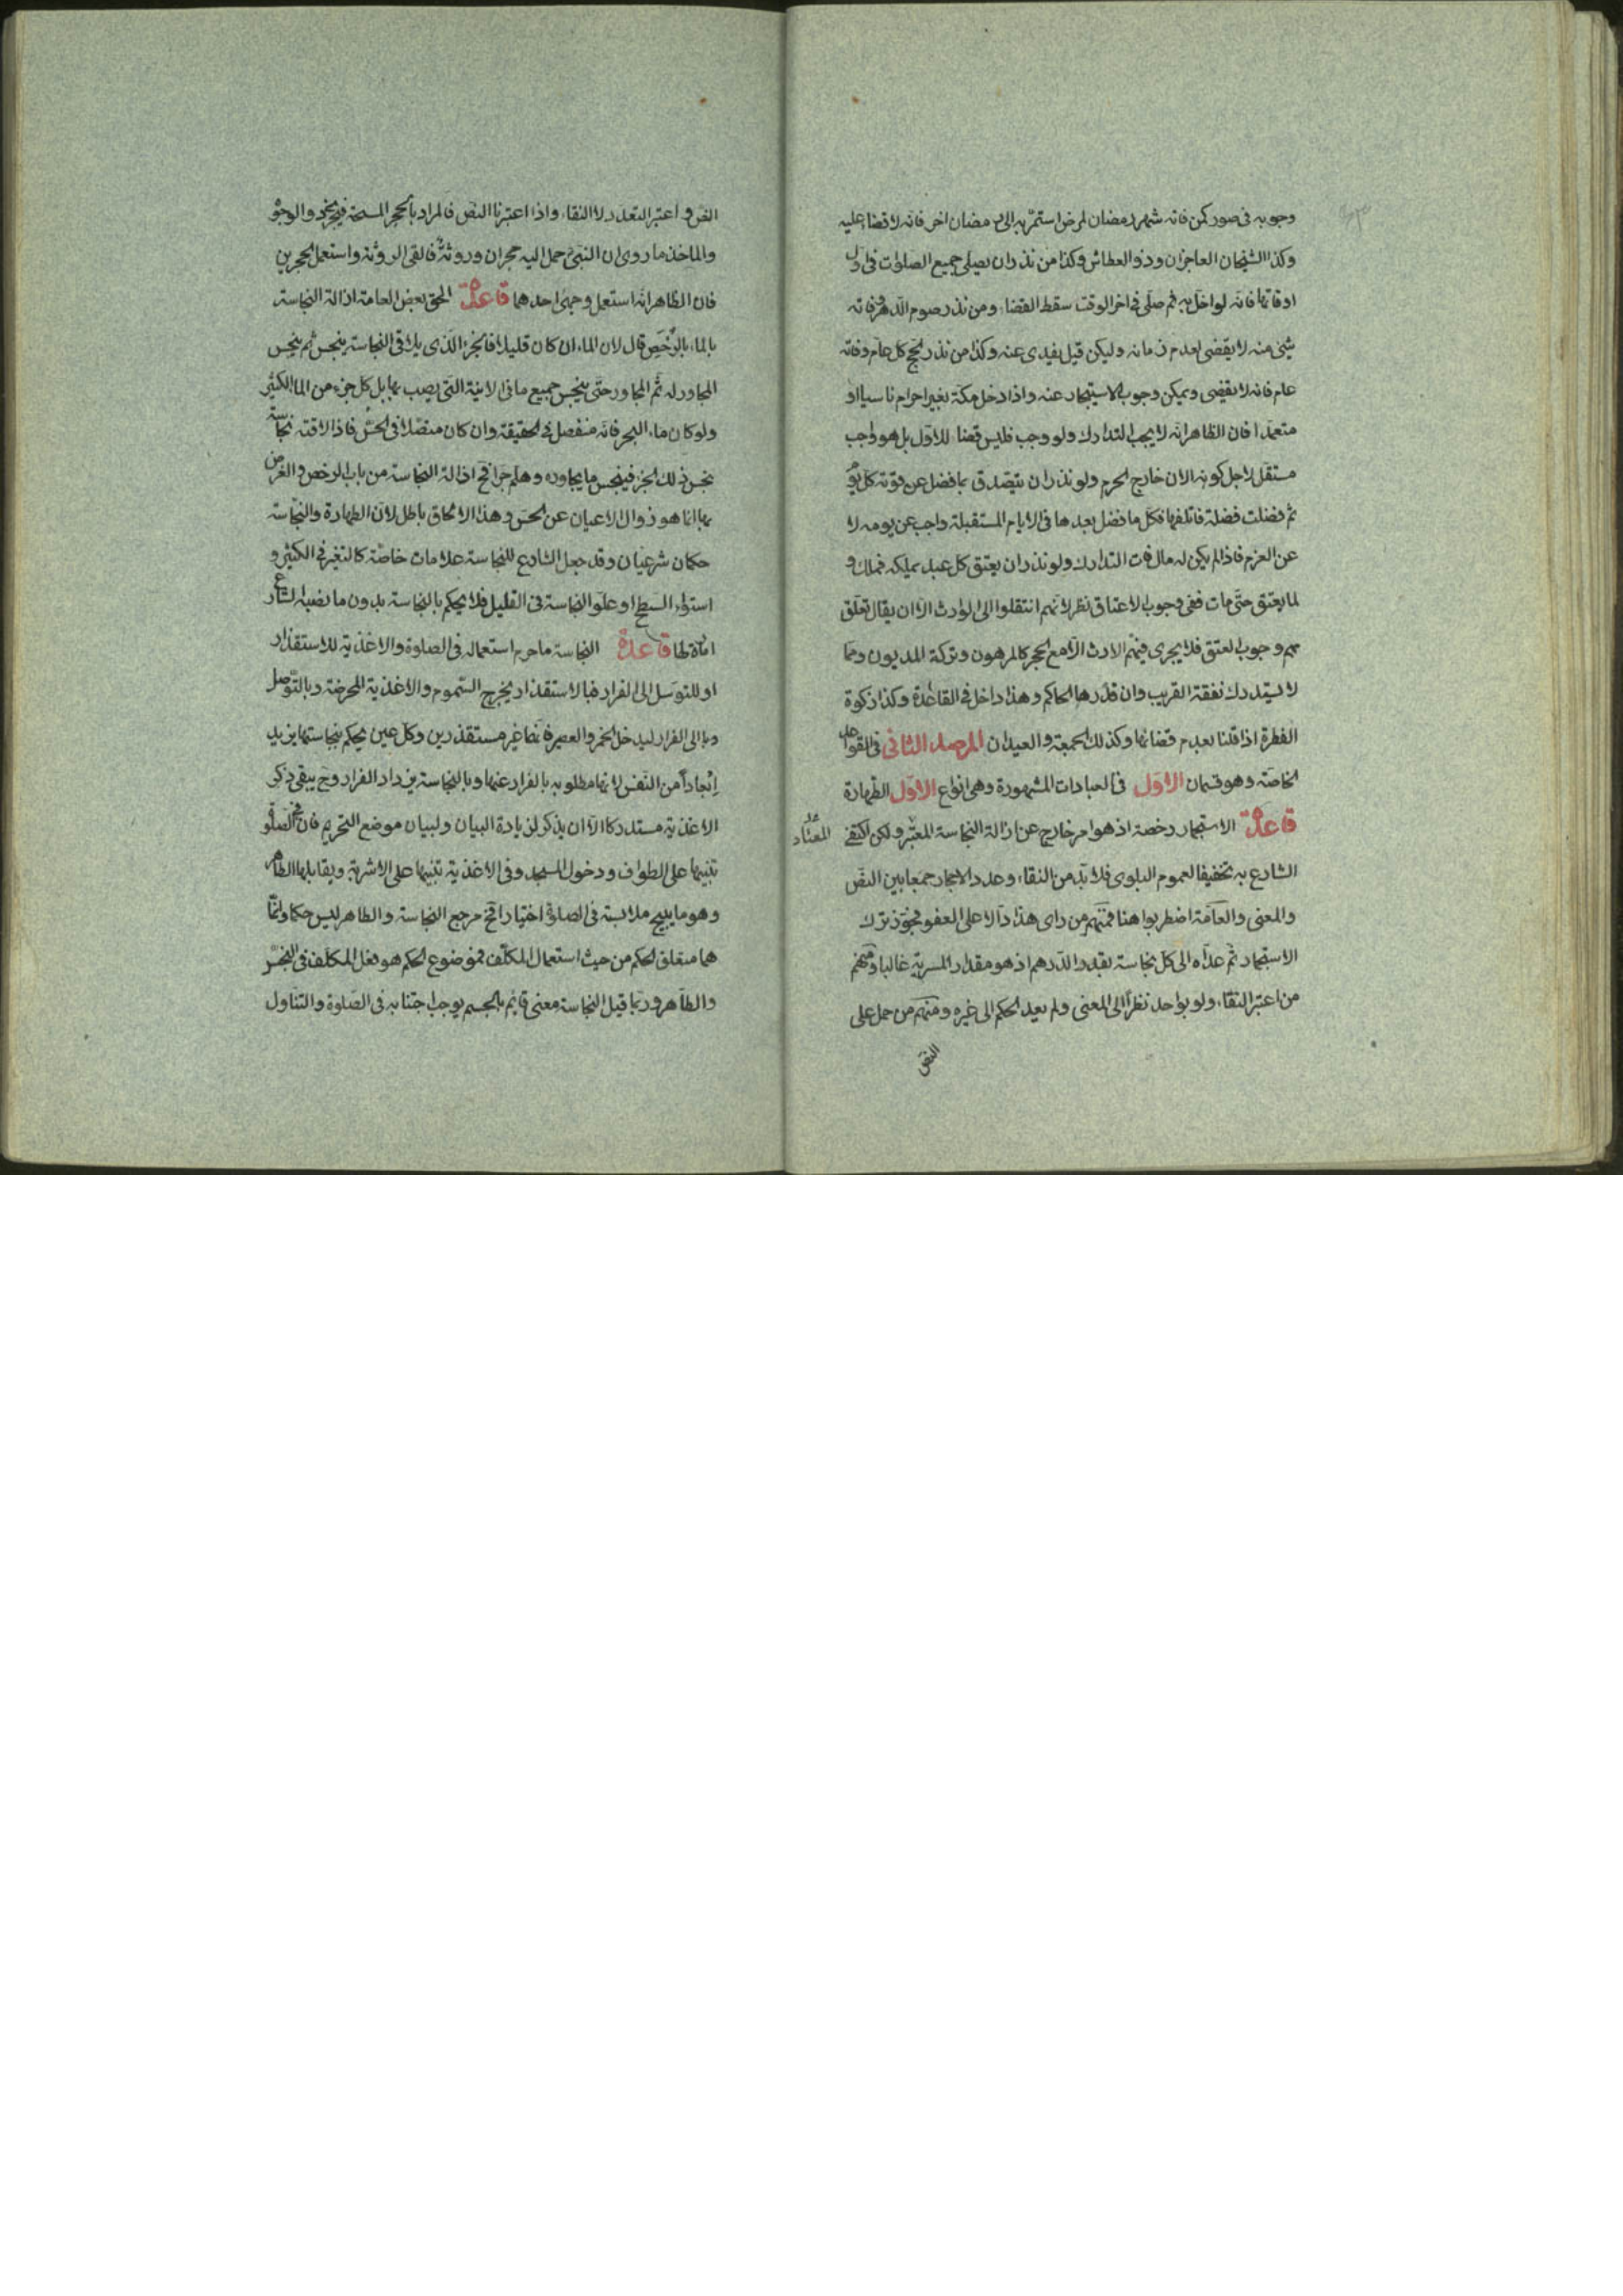 وجوبه فى صور كمن فاته شهر رمضان لمرض استمر به الى رمضان اخر فانه لا قضاء عليه
وكذا الشيخان العاجزان وذو العطاش وكذا من نذر ان يصلى جميع الصلوات فى اول
اوقاتها فانه لو اخل به ثم صلى فى اخر الوقت سقط القضاء ومن نذر صوم الدهر ففاته
شئ منه لا يقضى لعدم زمانه وليكن قيل يفدى عنه وكذا من نذر الحج كل عام وفاته
عام فانه لا يقضى ويمكن وجوب الاستيجار عنه واذا دخل مكة بغير احرام ناسيا او
متعمدا فان الظاهر انه لا يجب التدارك ولو وجب فليس قضاء للاول بل هو واجب
مستقل لاجل كونه الان خارج الحرم ولو نذر ان يتصدق بما فضل عن قوته كل يوم
ثم فضلت فضلة فاتلفها فكل ما فضل بعدها فى الايام المستقبلة واجب عن يومه لا
عن الغرم فاذا لم يكن له مال فات التدارك ولو نذر ان يعتق كل عبد يملكه فملك و
لما يعتق حتى مات ففى وجوب الاعتاق نظر لانهم انتقلوا الى الوارث الا ان يقال تعلق
بهم وجوب العتق فلا يجرى فيهم الارث الا مع الحجر كالمرهون وتركة المديون ومما
لا يستدرك نفقة القريب وان قدرها الحاكم وهذا داخل فى القاعدة وكذا زكوة
الفطرة اذا قلنا بعدم قضائها وكذلك الجمعة والعيدان المرصد الثانى فى القواعد
الخاصة وهو قسمان الاول فى العبادات المشهورة وهى انواع الاول الطهارة
قاعدة الاستجمار رخصة اذ هو امر خارج عن ازالة النجاسة المعتبر ولكن اكتفى
المعتاد
الشارع به تخفيفا لعموم البلوى فلا بد من النقاء وعدد الاحجار جمعا بين النص
والمعنى والعامة اضطربوا هنا فمنهم من راى هذا دالا على العفو فجوز ترك
الاستجمار ثم عداه الى كل نجاسة بقدر الدرهم اذ هو مقدار المسربة غالبا ومنهم
من اعتبر النقاء ولو بواحد نظرا الى المعنى ولم يعد الحكم الى غيره ومنهم من حمل على
النص
النص و اعتبر التعدد لا النقاء واذا اعتبرنا النص فالمراد بالحجر المسحة فيجزى ذو الوجوه
والماخذ ما روى ان النبى حمل اليه حجران وروثة فالقى الروثة واستعمل الحجرين
فان الظاهر انه استعمل وجهى احدهما قاعدة الحق بعض العامة ازالة النجاسة
بالماء بالرخص قال لان الماء ان كان قليلا فالجزء الذى يلاقى النجاسة ينجس ثم ينجس
المجاور له ثم المجاور حتى ينجس جميع ما فى الانية التى يصب بها بل كل جزء من الماء الكثير
ولو كان ماء البحر فانه منفصل فى الحقيقة وان كان متصلا فى الحس فاذا لاقته نجاسة
نجس ذلك الجزء فينجس ما يجاوره وهلم جرا فح ازالة النجاسة من باب الرخص والغرض
بها انما هو زوال الاعيان عن الحس وهذا الالحاق باطل لان الطهارة والنجاسة
حكمان شرعيان وقد جعل الشارع للنجاسة علامات خاصة كالتغير فى الكثير و
استواء السطح او علو النجاسة فى القليل فلا يحكم بالنجاسة بدون ما نصبه الشارع
امارة لها قاعدة النجاسة ما حرم استعماله فى الصلوة والاغذية للاستقذار
او للتوسل الى الفرار فبالاستقذار يخرج السموم والاغذية الممرضة وبالتوصل
الى الفرار ليدخل الخمر والعصير فانهما غير مستقذرين وكل عين يحكم بنجاستها يزيد
ابعادا من النفس لانها مطلوبه بالفرار عنها وبالنجاسة يزداد الفرار وح يبقى ذكر
الاغذية مستدركا الا ان يذكر لزيادة البيان ولبيان موضع التحريم فان فى الصلوة
تنبيها على الطواف ودخول المسجد وفى الاغذية تنبيها على الاشربة ويقابلها الطاهر
وهو ما يبيح ملابسته فى الصلوة اختيارا فح مرجع النجاسة والطاهر ليس حكما وانما
هما متعلق الحكم من حيث استعمال المكلف فموضوع الحكم هو فعل المكلف فى النجس
والطاهر وربما قيل النجاسة معنى قائم بالجسم يوجب اجتنابه فى الصلوة والتناول